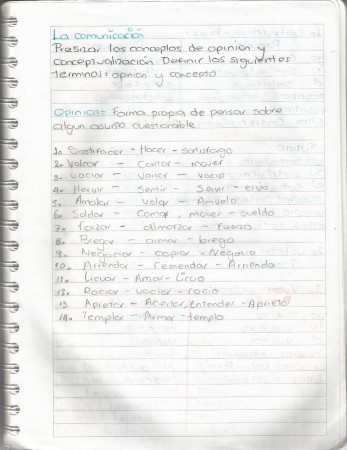 La comunicación
Presizar los conceptos de opinion y
conceptualización Definir los siguientes
terminos: opinion y concepto
Opinion= Forma propia de pensar sobre
algun asunto cuestionable
1. Sastifacer - Hacer - Satisfago
2. Volcar - Contar - mover
3. vaciar - Variar - vacio
4. Hervir - Sentir - Servir -
5. Amolar - Volar - Amuelo
6. Soldar - Contar, mover - sueldo
7. Forzar - almorzar - Fuerzo
8. Bregar - amar - brego
9. Negociar - copiar - Negocio
10. Arrendar - Remendar - Arriendo
11. Licuar - Amar - Licuo
12. Rociar - vaciar - rocio
13. Apretar - Acertar, Entender - Aprieto
14. Templar - Amar - templo